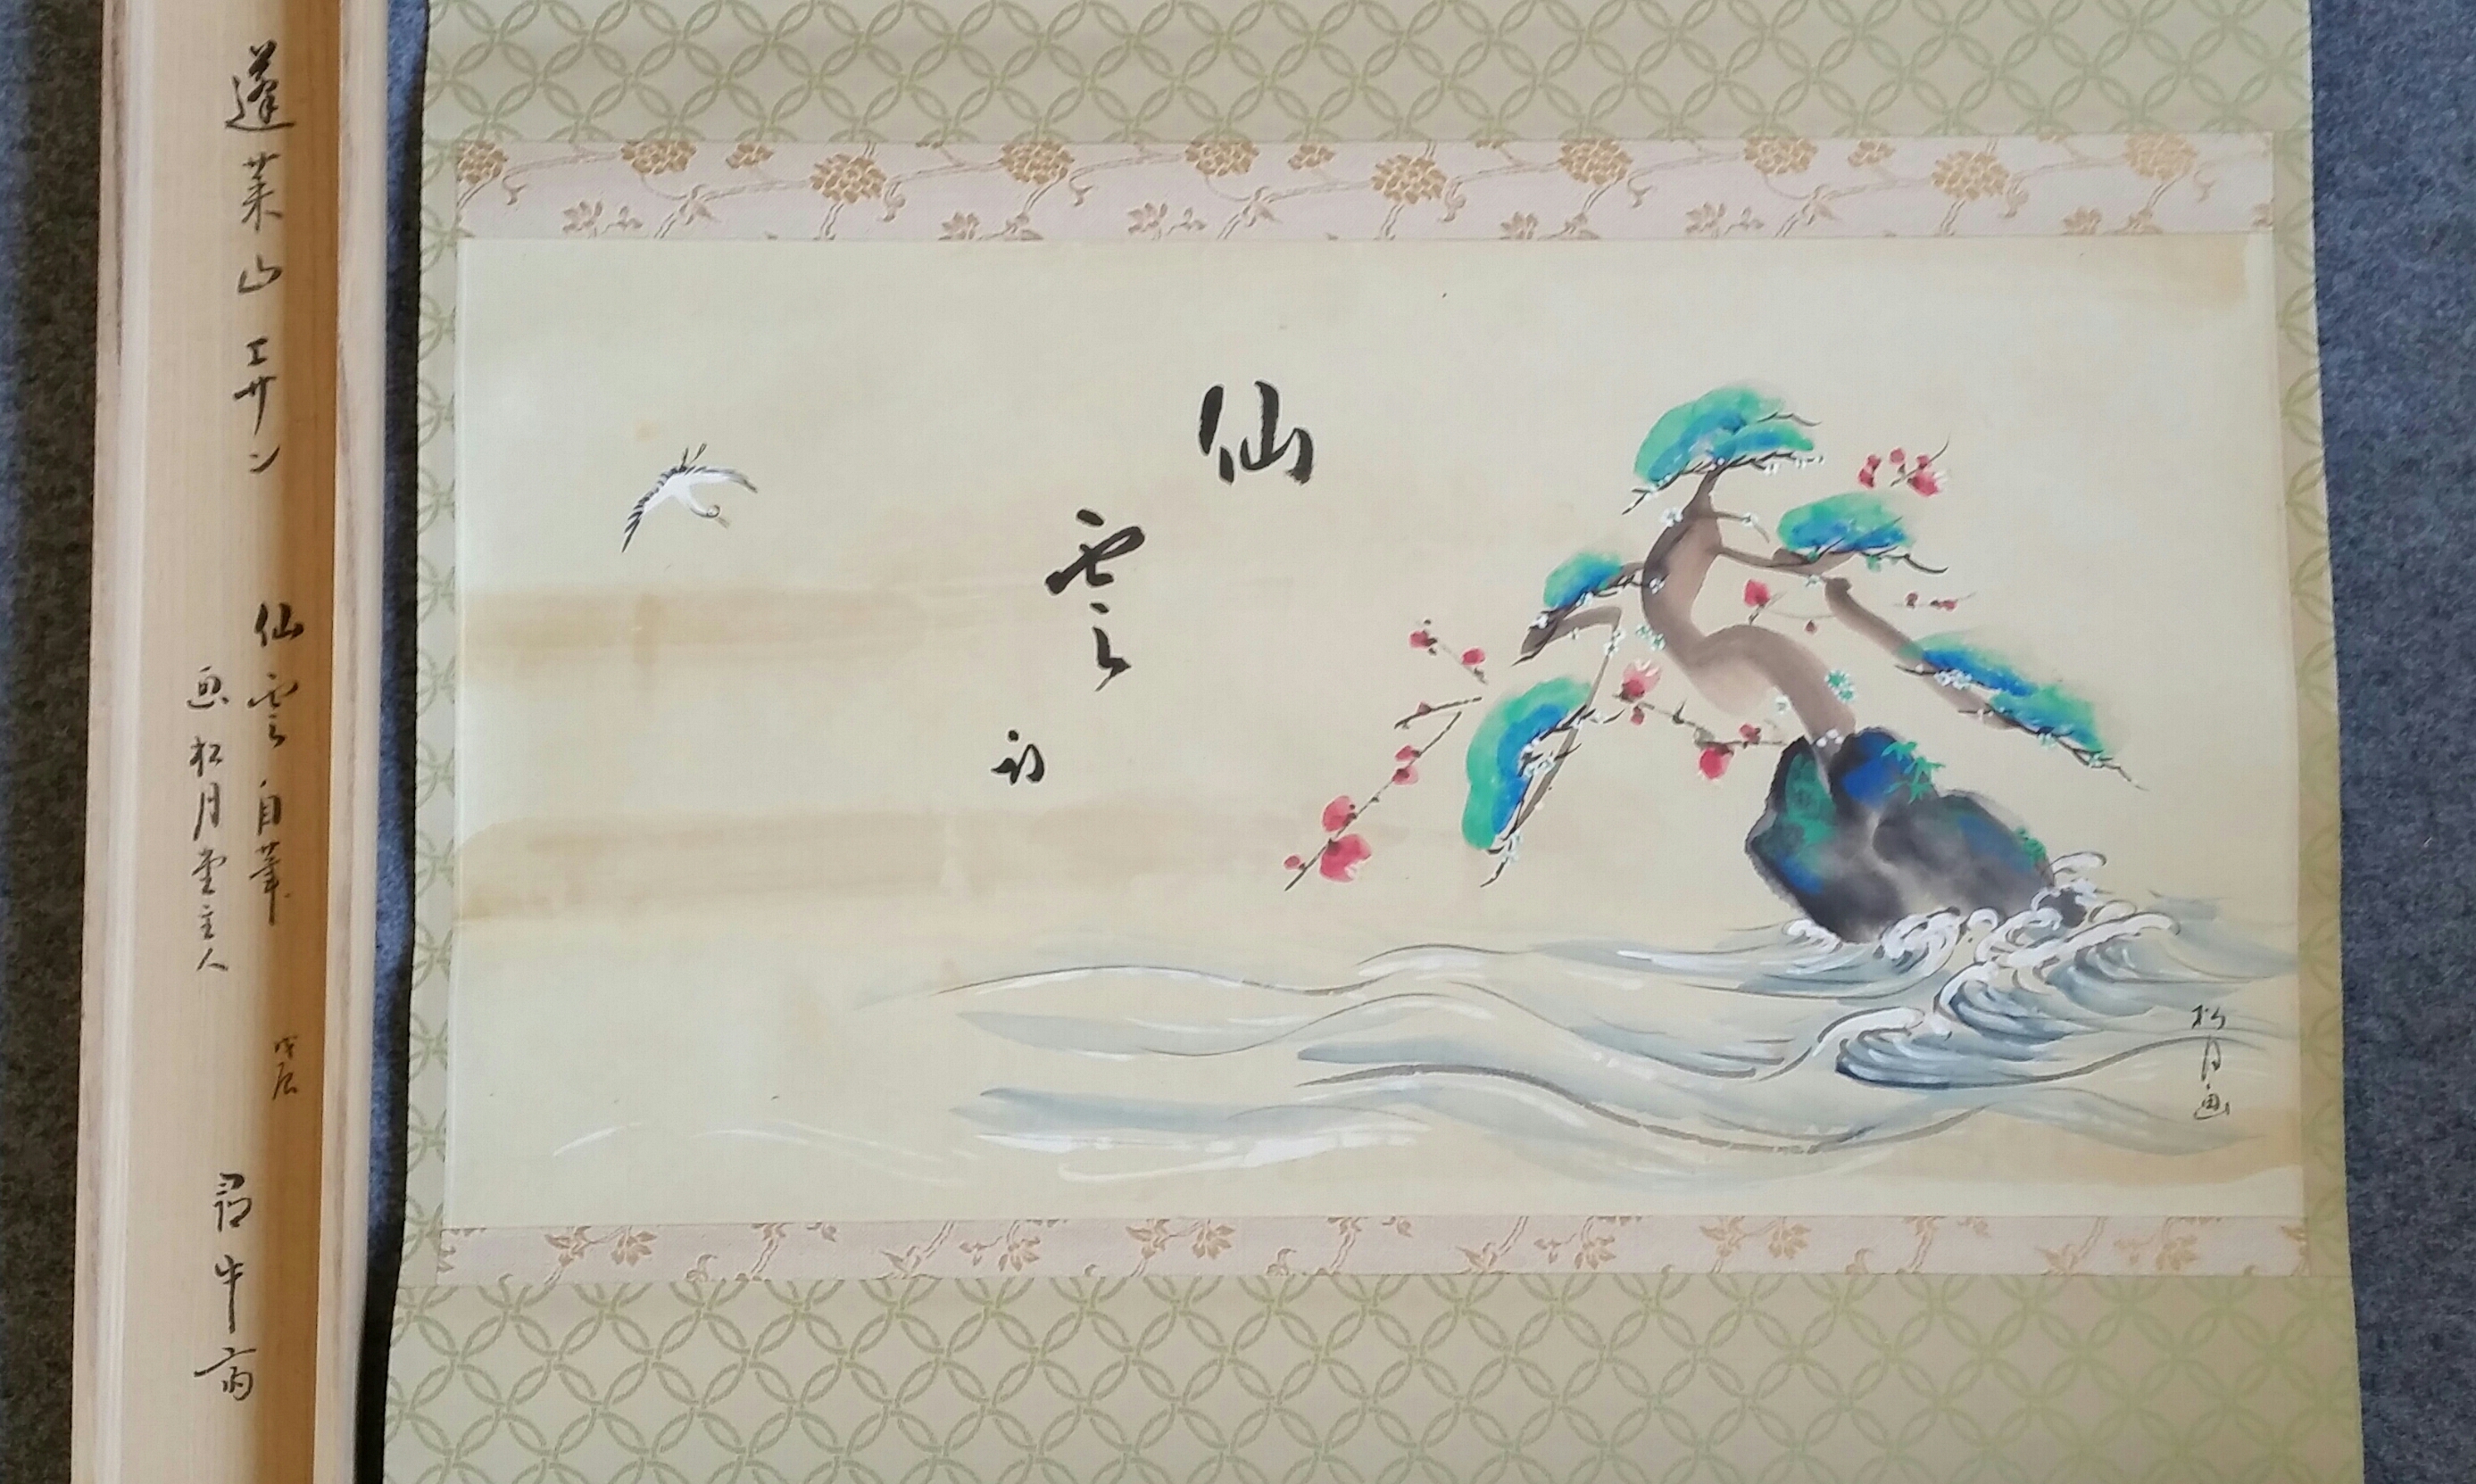 蓬莱山 エサン
仙雲自筆
画 松月堂主人
戊辰
尋牛斎
仙
雲
松月画